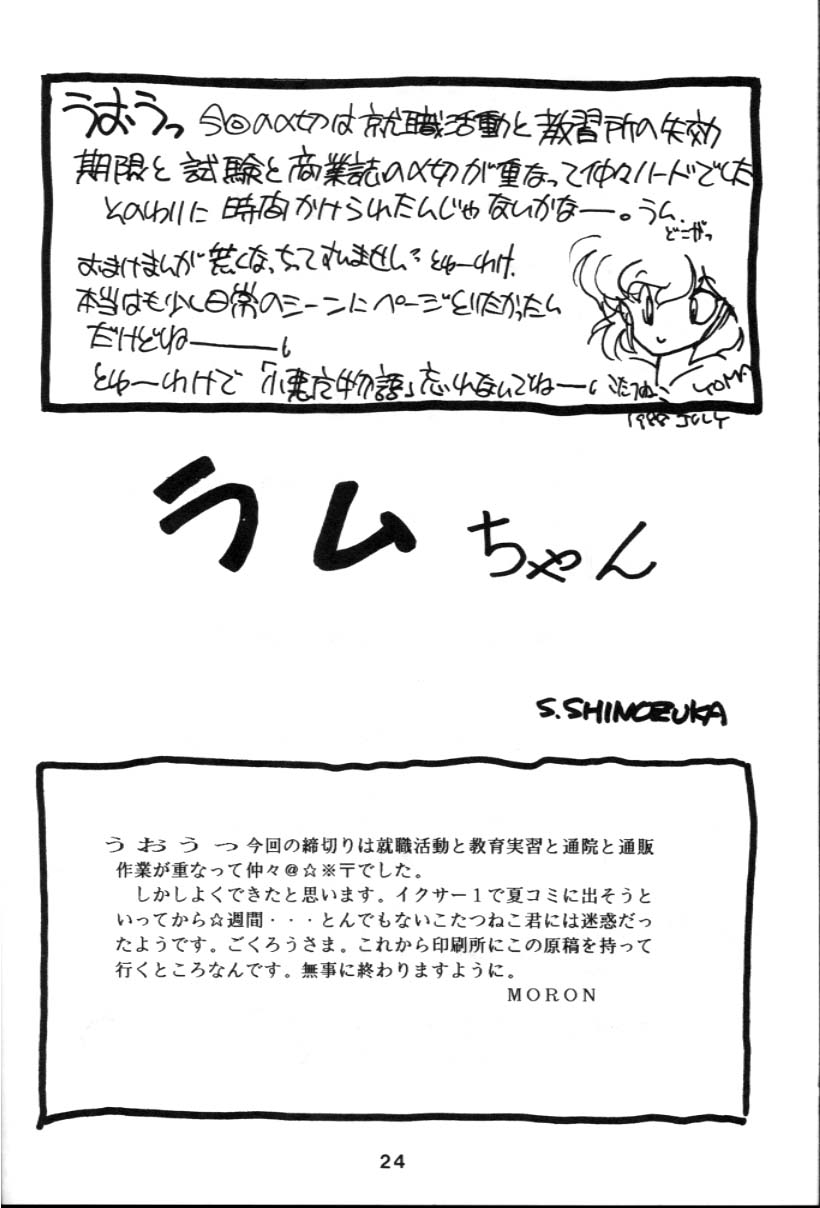 うおうっ 今回の〆切は就職活動と教習所の失効
期限と試験と商業誌の〆切が重なって仲々ハードでした
そのわりに時間かけられたんじゃないかなー。うん。
どこがっ
おまけまんが荒くなっちってすいません。とゆーわけ。
本当はも少し日常のシーンにページとりたかったん
だけどねー。
とゆーわけで「小悪魔物語」忘れないでねー。こたつねこ
1988 JULY
ラムちゃん
S.SHINOZUKA
うおうっ今回の締切りは就職活動と教育実習と通院と通販
作業が重なって仲々@☆※〒でした。
しかしよくできたと思います。イクサー1で夏コミに出そうと
いってから☆週間・・・とんでもないこたつねこ君には迷惑だっ
たようです。ごくろうさま。これから印刷所にこの原稿を持って
行くところなんです。無事に終わりますように。
MORON
24